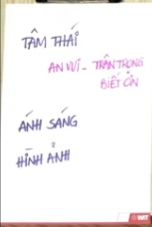 TÂM THÁI
AN VUI - TRÂN TRỌNG
BIẾT ƠN
ÁNH SÁNG
HÌNH ẢNH